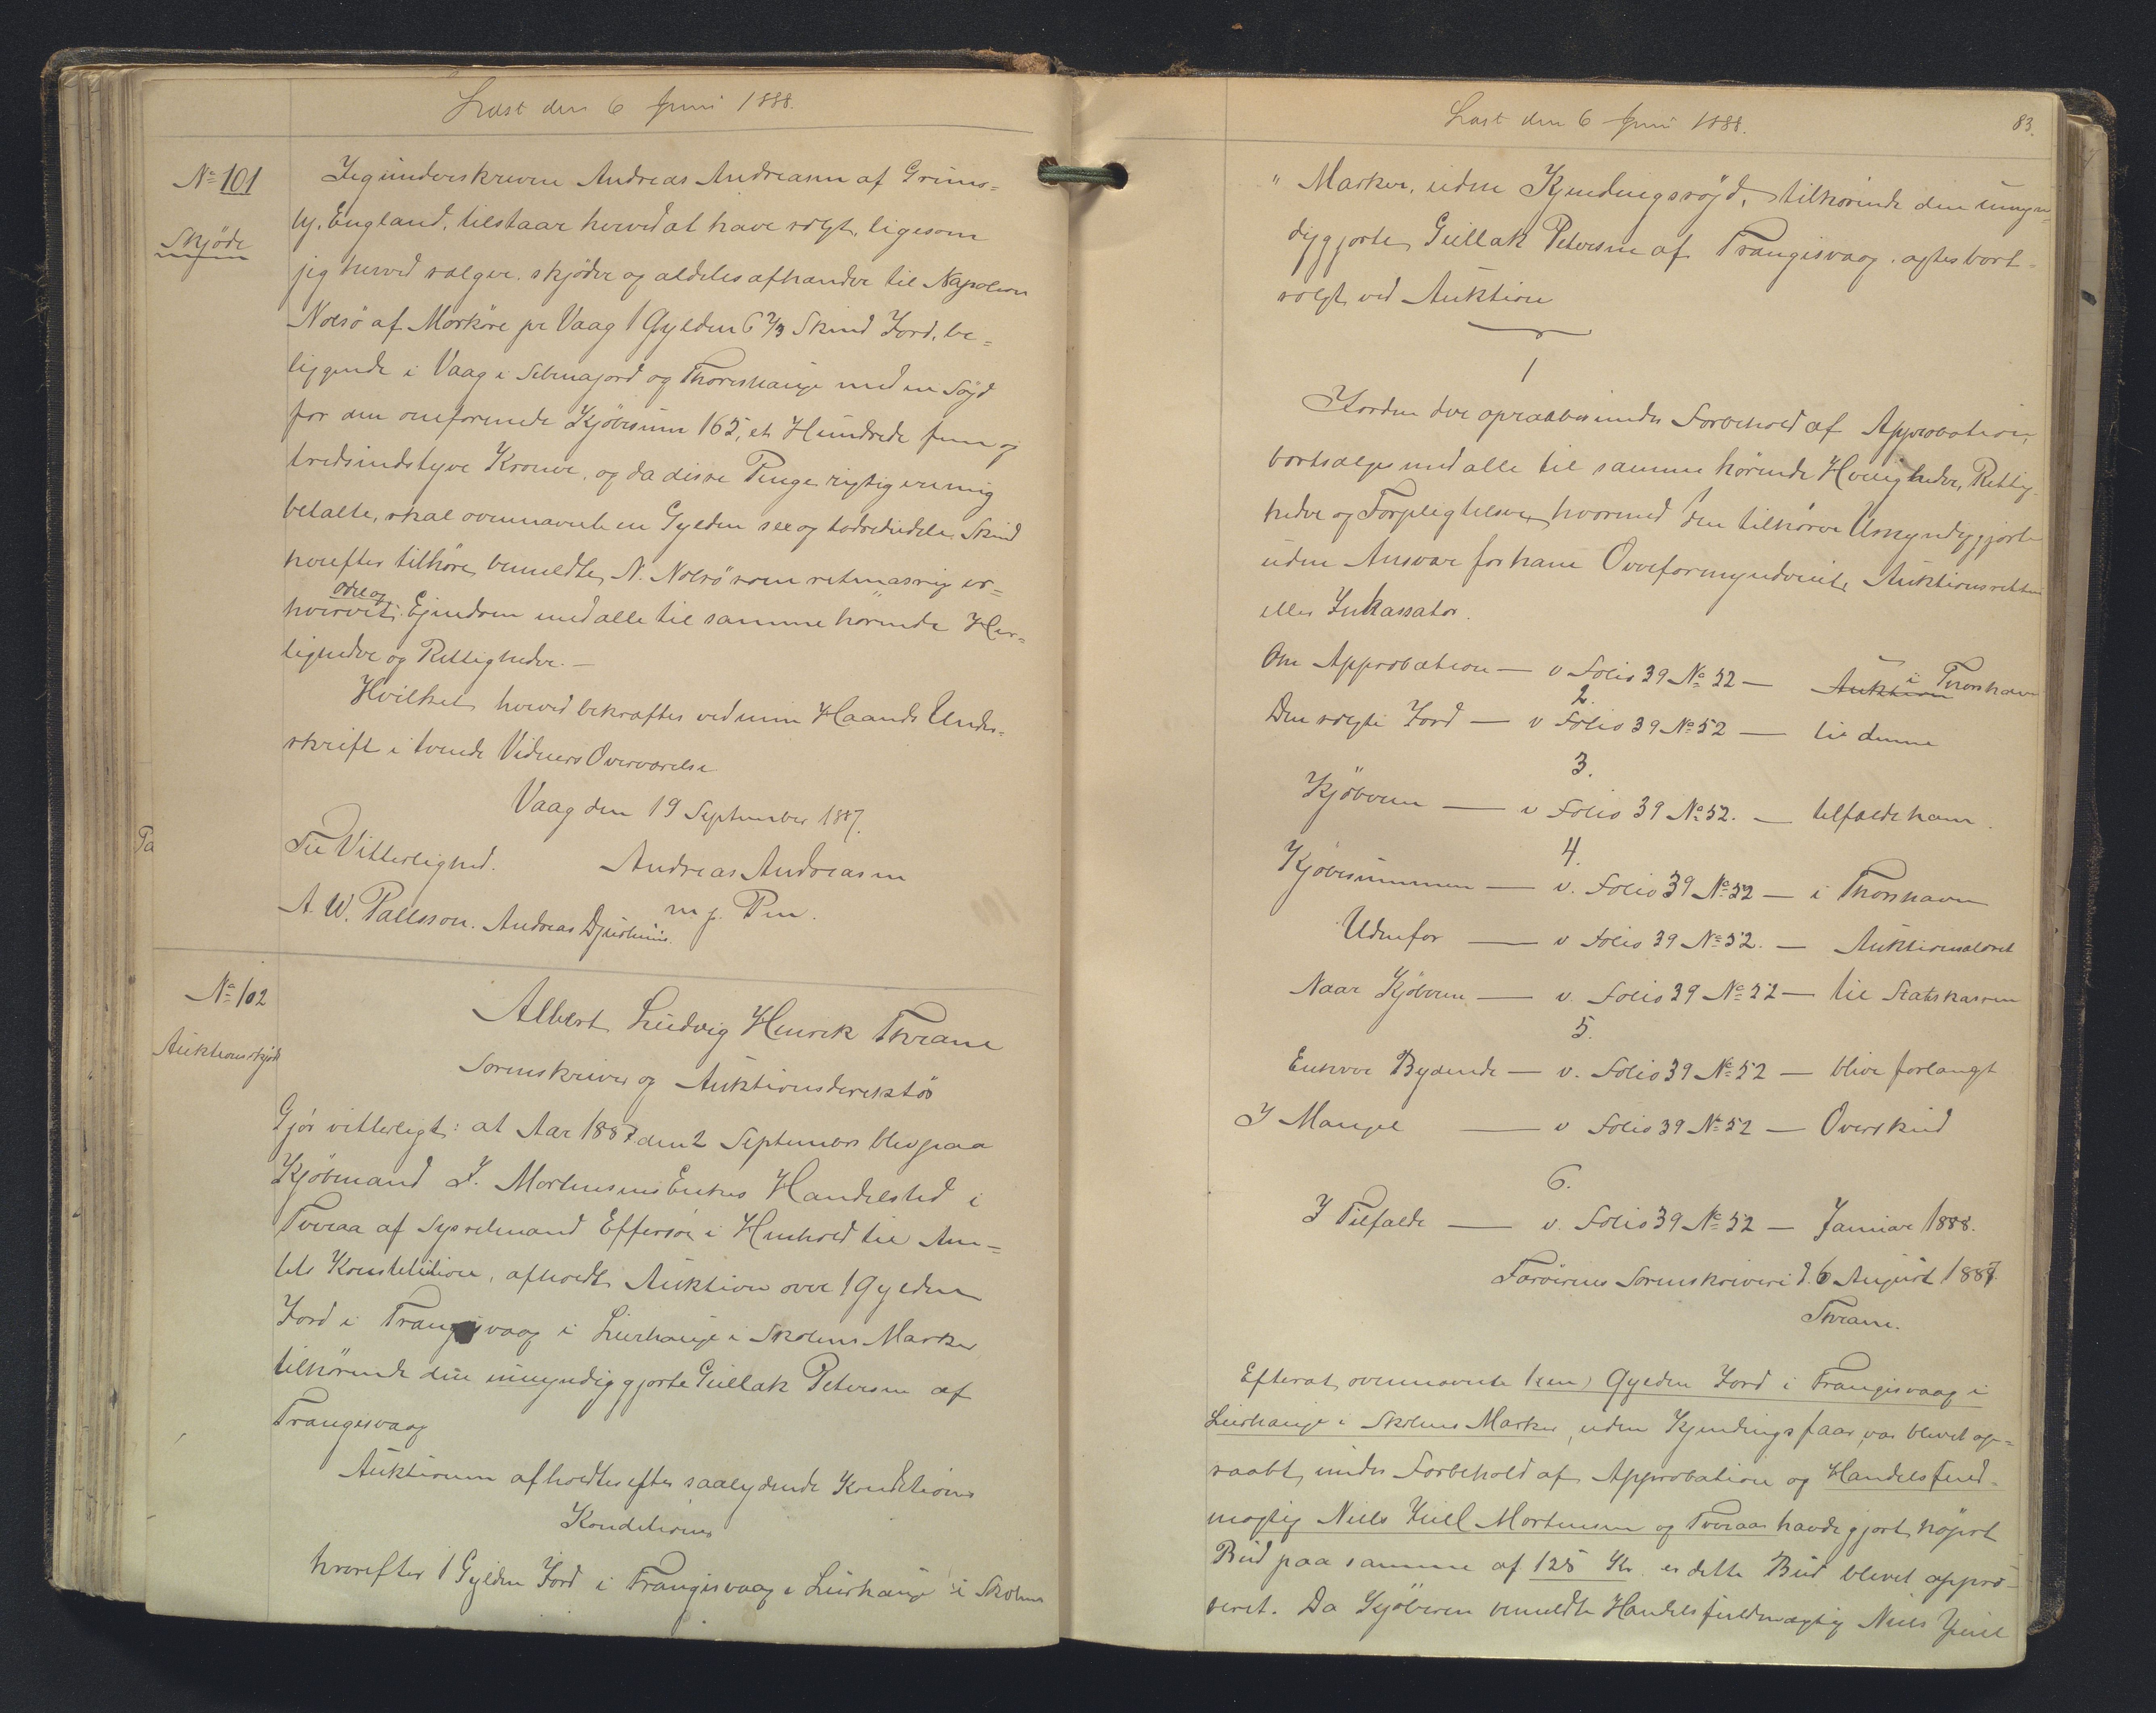 Læst den 6 Juni 1888.
No 101
Skjöde
Jeg underskrevne Andreas Andreasen af Grims=
by, England, tilstaar herved at have solgt, ligesom
jeg herved sælger, skjöder og aldeles afhænder til Napoleon
Nolsö af Morköre pr Vaag 1 Gylden 6 2/3 Skind Jord, be=
liggende i Vaag i Selmajord og Thoreshauge med en Söyd
for den omforenede Kjöbesum 165, et Hundrede fem og
tredsindstyve Kroner, og da disse Penge rigtig ere mig
betalte, skal ovennævnte en Gylden sex og totrediedele Skind
herefter tilhöre bemeldte N. Nolsö som retmæssig er=
odel og
hvervet Ejendom med alle til samme hörende Her=
ligheder og Rettigheder. —
Hvilket herved bekræftes ved min Haands Under=
skrift i tvende Vidners Overværelse
Vaag den 19 September 1887.
Til Vitterlighed. Andreas Andreasen
A. W. Pallsson. Andreas Djurhuus. m. f. Pen.
No 102
Auktionsskjöde
Albert Ludvig Henrik Thrane
Sorenskriver og Auktionsdirektör
Gjör vitterligt: at Aar 1887 den 2 September blev paa
Kjöbmand J. Mortensens Enkes Handelsted i
Tveraa af Sysselmand Effersöe i Henhold til Am=
tets Konstitution, afholdt Auktion over 1 Gylden
Jord i Trangisvaag i Liushauge i Skolens Marker
tilhörende den umyndiggjorte Gullak Petersen af
Trangisvaag
Auktionen afholdtes efter saalydende Konditioner
Konditioner
hvorefter 1 Gylden Jord i Trangisvaag i Liushauge i Skolens
Læst den 6 Juni 1888.
83.
" Marker, uden Kjendingsöyd, tilhörende den umyn=
diggjorte Gullak Petersen af Trangisvaag, agtes bort=
solgt ved Auktion
1
Jorden der opraabes under Forbehold af Approbation,
bortsælges med alle til samme hörende Herligheder, Rettig=
heder og Forpligtelser, hvormed den tilhörer Umyndiggjorte
uden Ansvar for ham Overformynderiet, Auktionsretten
eller Inkassator.
Om Approbation — v Folio 39 No 52 — Auktion i Thorshavn
2.
Den solgte Jord — v Folio 39 No 52 — til denne
3.
Kjöberen — v Folio 39 No 52. — tilfalde ham.
4.
Kjöbesummen — v. Folio 39 No 52 — i Thorshavn
Udenfor — v Folio 39 No 52. — Auktionsalæret
Naar Kjöberen — v. Folio 39 No 52 — til Statskassen
5.
Enhver Bydende — v. Folio 39 No 52 — blive forlangt
I Mangel — v Folio 39 No 52 — Overskud
6.
I Tilfælde — v. Folio 39 No 52 — Januar 1888.
Færöernes Sorenskriveri d. 6 August 1887.
Thrane.
Efterat ovennævnte 1 (en) Gylden Jord i Trangisvaag i
Liushauge i Skolens Marker, uden Kjendingsfaar, var blevet op=
raabt, under Forbehold af Approbation og Handelsfuld=
mægtig Niels Juel Mortensen og Tveraa havde gjort höjest
Bud paa samme af 125 Kr. er dette Bud blevet appro=
beret. Da Kjöberen bemeldte Handelsfuldmægtig Niels Juel